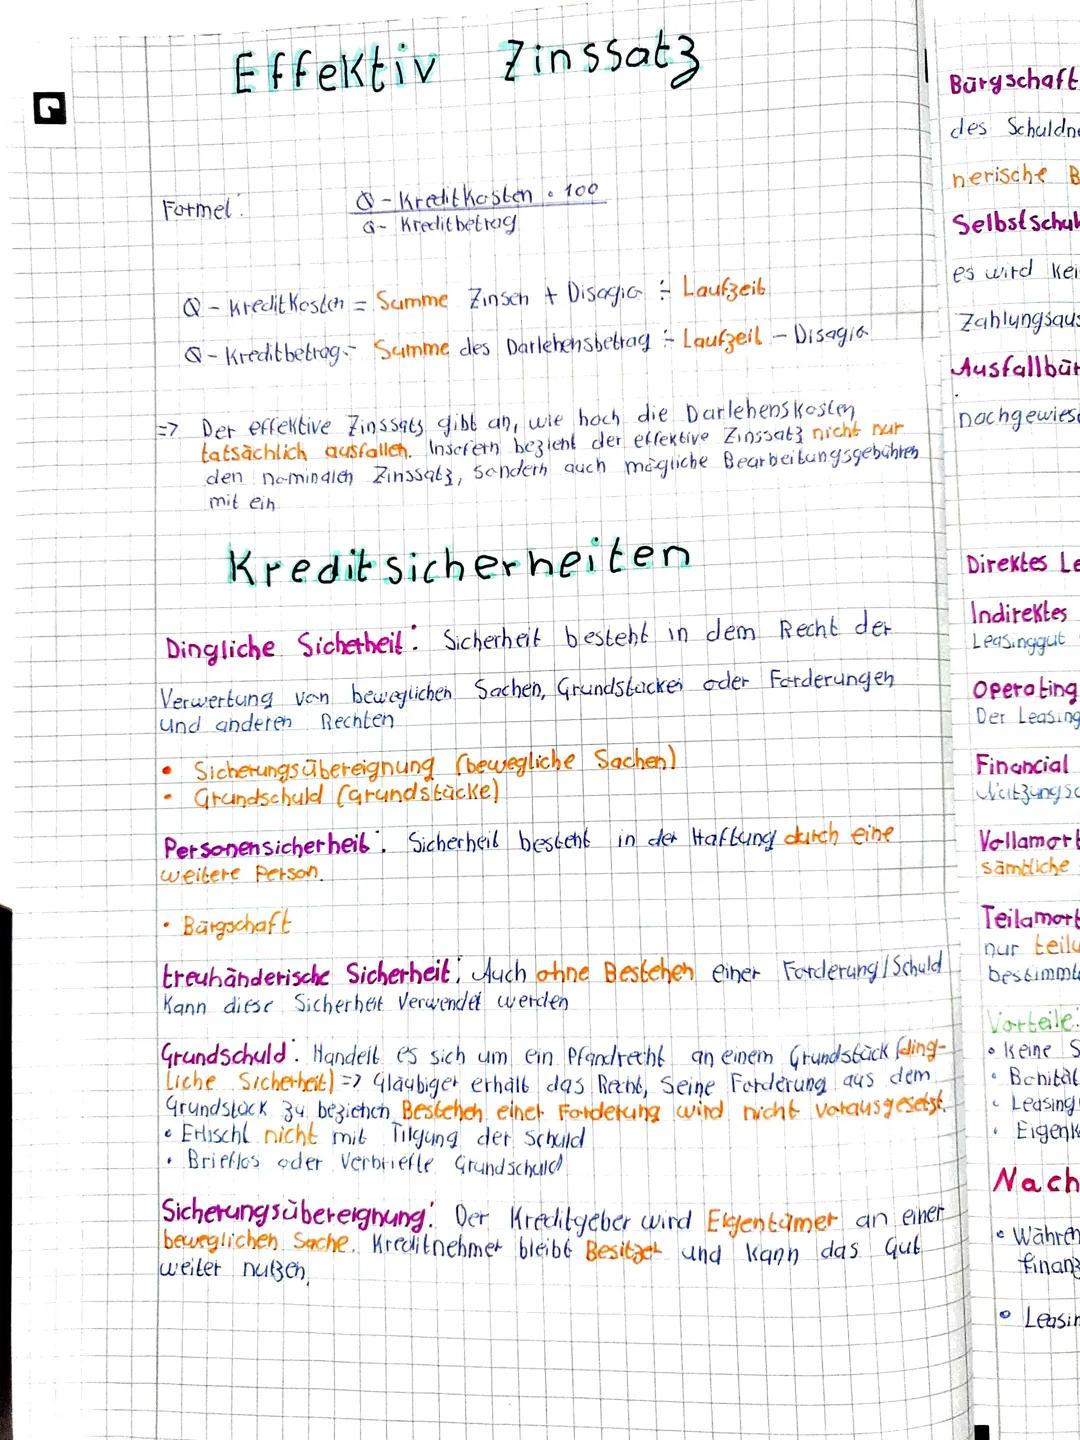 Effektiv Zinssatz
Formel:
Ø - Kreditkosten · 100
Ø - Kreditbetrag
Ø - Kreditkosten = Summe Zinsen + Disagio ÷ Laufzeit
Ø - Kreditbetrag = Summe des Darlehensbetrag ÷ Laufzeit - Disagio
=> Der effektive Zinssatz gibt an, wie hoch die Darlehenskosten
tatsächlich ausfallen. Insofern bezieht der effektive Zinssatz nicht nur
den nominalen Zinssatz, sondern auch mögliche Bearbeitungsgebühren
mit ein
Kreditsicherheiten
Dingliche Sicherheit: Sicherheit besteht in dem Recht der
Verwertung von beweglichen Sachen, Grundstücken oder Forderungen
und anderen Rechten
• Sicherungsübereignung (bewegliche Sachen)
• Grundschuld (Grundstücke)
Personensicherheit: Sicherheit besteht in der Haftung durch eine
weitere Person.
• Bürgschaft
treuhänderische Sicherheit: Auch ohne Bestehen einer Forderung/Schuld
kann diese Sicherheit verwendet werden
Grundschuld: Handelt es sich um ein Pfandrecht an einem Grundstück (ding-
liche Sicherheit) => Gläubiger erhält das Recht, seine Forderung aus dem
Grundstück zu beziehen. Bestehen einer Forderung wird nicht vorausgesetzt.
• Erlischt nicht mit Tilgung der Schuld
• Brieflos oder Verbriefte Grundschuld
Sicherungsübereignung: Der Kreditgeber wird Eigentümer an einer
beweglichen Sache. Kreditnehmer bleibt Besitzer und kann das Gut
weiter nutzen.
Bürgschaft
des Schuldne
nerische B
Selbstschul
es wird kei
Zahlungsaus
Ausfallbür
nachgewiese
Direktes Le
Indirektes
Leasinggut
Operating
Der Leasing
Financial
Nutzungsd
Vollamort
sämtliche
Teilamort
nur teilw
bestimmt
Vorteile:
• Keine S
• Bonität
• Leasing
• Eigenk
Nach
• Währen
finanz
• Leasin